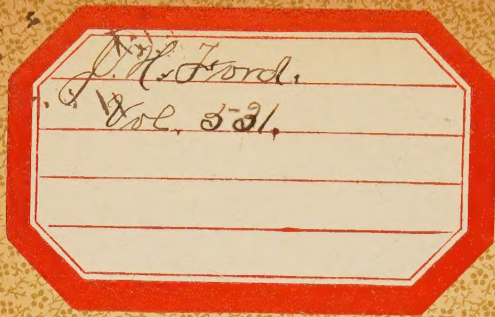 J. H. Ford.
Vol. 531.